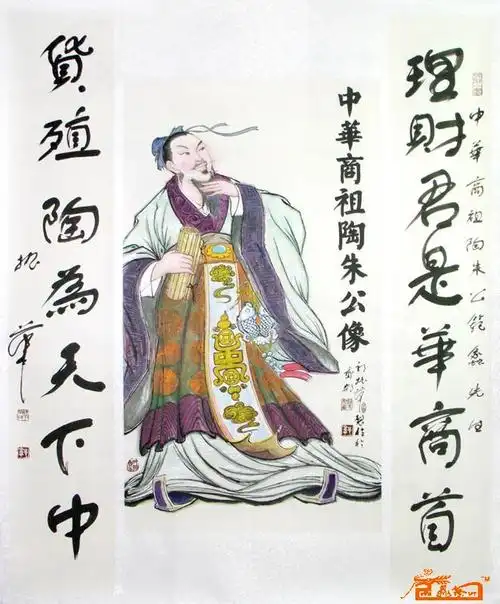 理財君是華商首
中華商祖陶朱公範蠡先生
中華商祖陶朱公像
貨殖陶為天下中